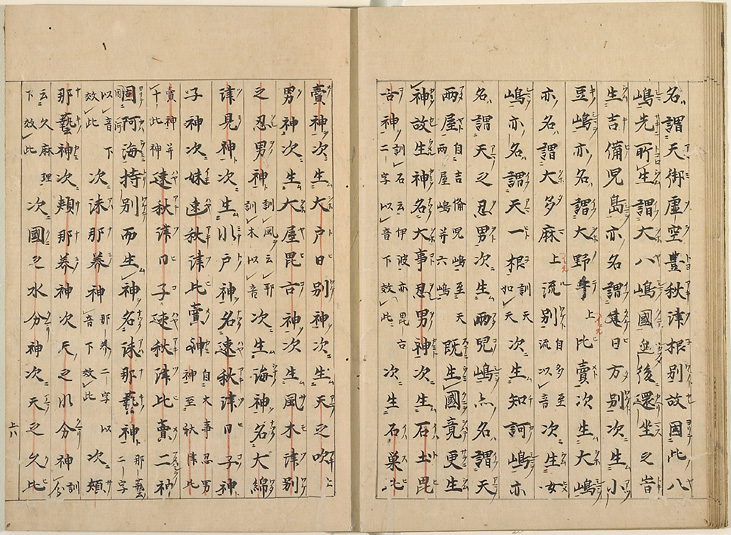 名謂天御虚空豊秋津根別故因此八
嶋先所生謂大八嶋國然後還坐之時
生吉備児島亦名謂建日方別次生小
豆嶋亦名謂大野手上比賣次生大嶋
亦名謂大多麻上流別自多至流以音次生女
嶋亦名謂天一根訓天如天次生知訶嶋亦
名謂天之忍男次生兩児嶋亦名謂天
兩屋自吉備児嶋至天兩屋嶋并六嶋既生國竟更生
神故生神名大事忍男神次生石土毘
古神訓石云伊波亦毘古二字以音下效此次生石巣比
賣神次生大戸日別神次生天之吹上
男神次生大屋毘古神次生風木津別
之忍男神訓風云耶訓木以音次生海神名大綿
津見神次生水戸神名速秋津日子神
次妹速秋津比賣神自大事忍男神至秋津比
賣神并十神此速秋津日子速秋津比賣二神
因河海持別而生神名沫那藝神那藝二字
以音下效此次沫那美神那美二字以音下效此次頬
那藝神次頬那美神次天之水分神訓分
云久麻理下效此次國之水分神次天之久比
上八